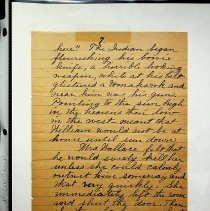 7
here". The Indian began
flourishing his bowie
knife, a horrible looking
weapon, while at his belt
glistened a tomahawk and
near him was his gun.
Pointing to the sun high
in the heavens then low
in the west meant that
William would not be at
home until sun down.
Mrs Wallace felt that
he would surely kill her
unless she could calmly
outwit him someway and
that very quickly. She
immediately left the room
and shut the door. Then